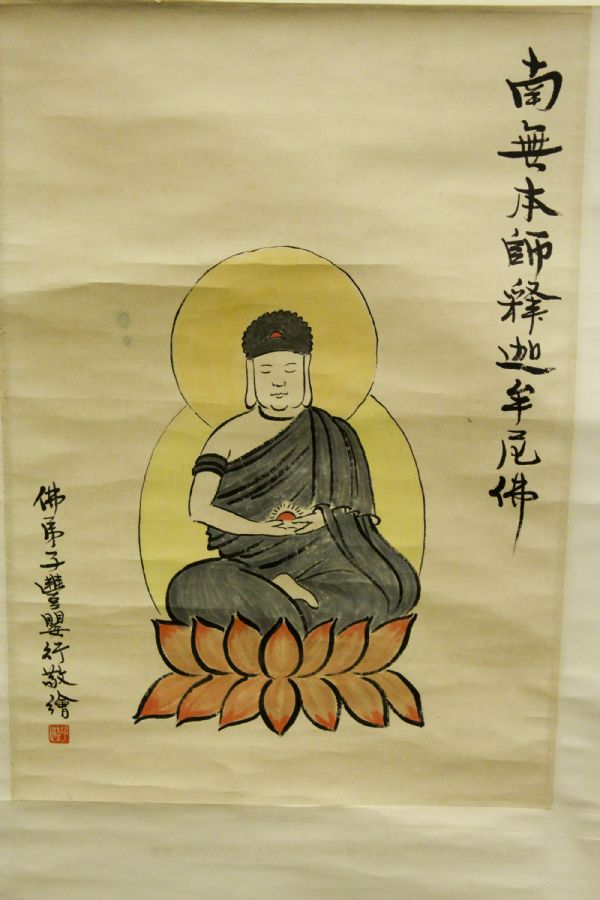 南無本師释迦牟尼佛
佛弟子豐嬰行敬繪